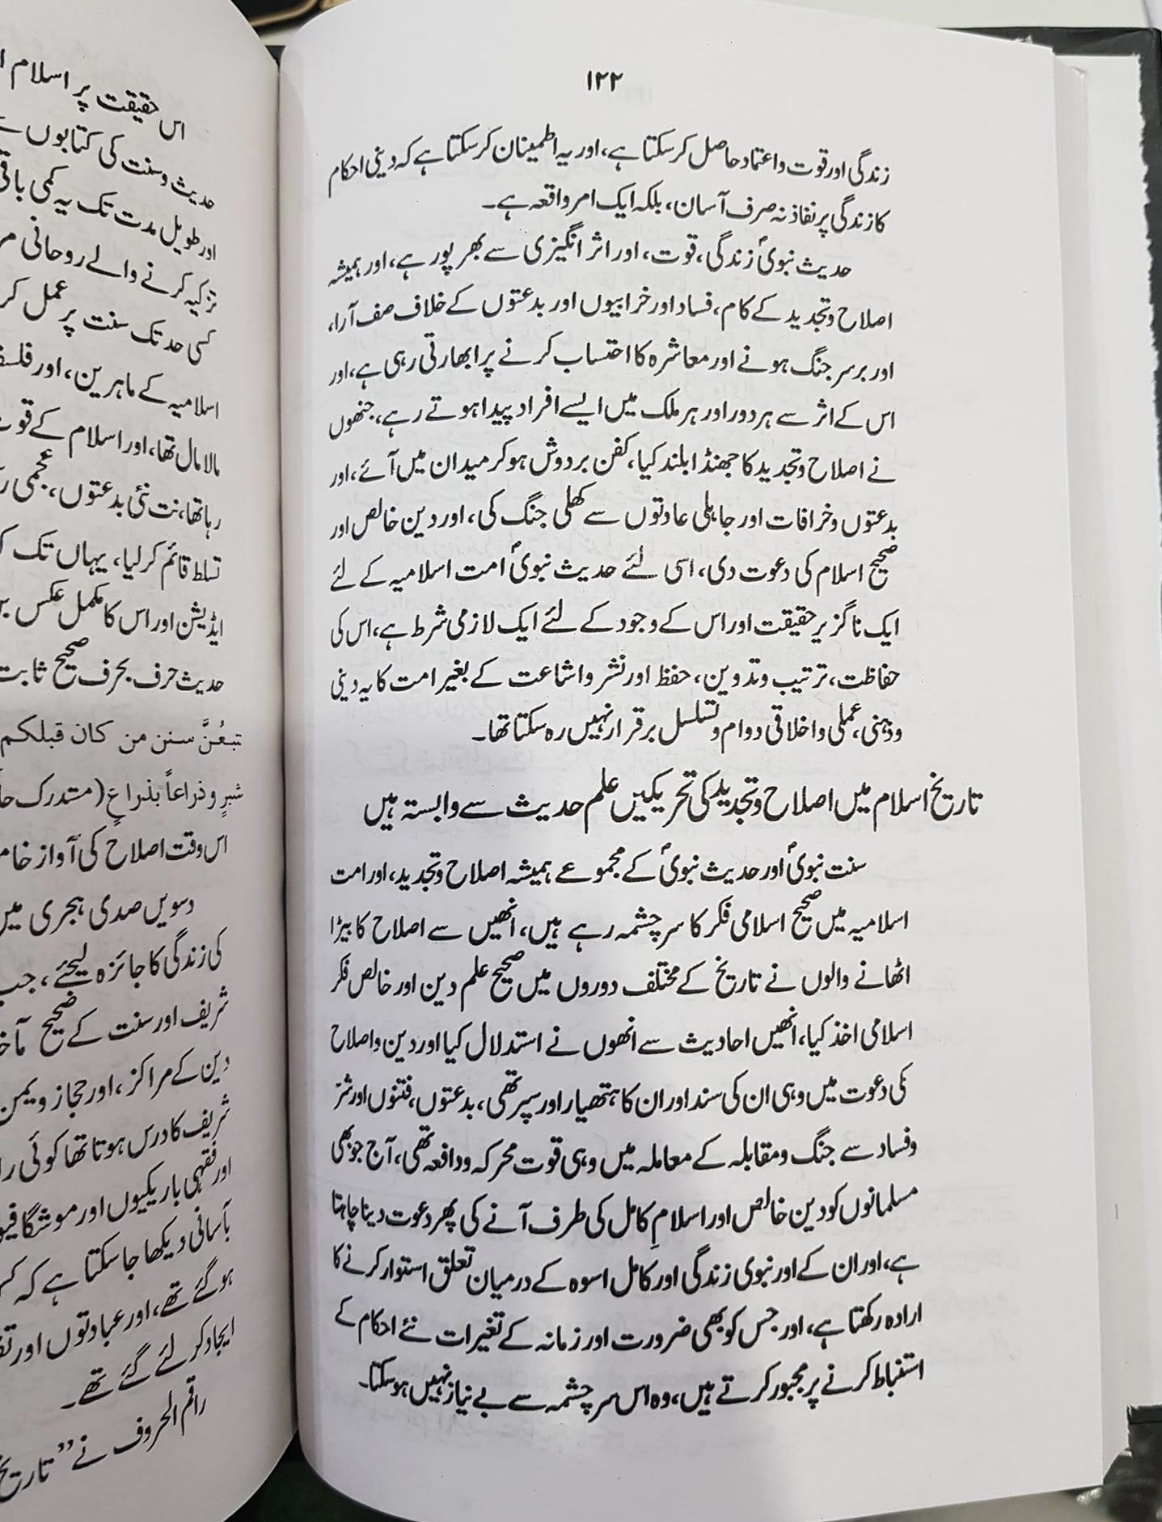 ۱۲۲
زندگی اور قوت و اعتماد حاصل کرسکتا ہے، اور یہ اطمینان کرسکتا ہے کہ دینی احکام
کا زندگی پر نفاذ نہ صرف آسان، بلکہ ایک امر واقعہ ہے۔
حدیث نبویؐ زندگی، قوت، اور اثر انگیزی سے بھرپور ہے، اور ہمیشہ
اصلاح و تجدید کے کام، فساد اور خرابیوں اور بدعتوں کے خلاف صف آرا،
اور برسر جنگ ہونے اور معاشرہ کا احتساب کرنے پر ابھارتی رہی ہے، اور
اس کے اثر سے ہر دور اور ہر ملک میں ایسے افراد پیدا ہوتے رہے، جنھوں
نے اصلاح و تجدید کا جھنڈا بلند کیا، کفن بردوش ہوکر میدان میں آئے، اور
بدعتوں و خرافات اور جاہلی عادتوں سے کھلی جنگ کی، اور دین خالص اور
صحیح اسلام کی دعوت دی، اسی لئے حدیث نبویؐ امت اسلامیہ کے لئے
ایک ناگزیر حقیقت اور اس کے وجود کے لئے ایک لازمی شرط ہے، اس کی
حفاظت، ترتیب و تدوین، حفظ اور نشر و اشاعت کے بغیر امت کا یہ دینی
و ذہنی، عملی و اخلاقی دوام و تسلسل برقرار نہیں رہ سکتا تھا۔
تاریخ اسلام میں اصلاح و تجدید کی تحریکیں علم حدیث سے وابستہ ہیں
سنت نبویؐ اور حدیث نبویؐ کے مجموعے ہمیشہ اصلاح و تجدید، اور امت
اسلامیہ میں صحیح اسلامی فکر کا سرچشمہ رہے ہیں، انھیں سے اصلاح کا بیڑا
اٹھانے والوں نے تاریخ کے مختلف دوروں میں صحیح علم دین اور خالص فکر
اسلامی اخذ کیا، انھیں احادیث سے انھوں نے استدلال کیا اور دین و اصلاح
کی دعوت میں وہی ان کی سند اور ان کا ہتھیار اور سپر تھی، بدعتوں، فتنوں اور شر
و فساد سے جنگ و مقابلہ کے معاملہ میں وہی قوت محرکہ و دافعہ تھی، آج جو بھی
مسلمانوں کو دین خالص اور اسلامِ کامل کی طرف آنے کی پھر دعوت دینا چاہتا
ہے، اور ان کے اور نبوی زندگی اور کامل اسوہ کے درمیان تعلق استوار کرنے کا
ارادہ رکھتا ہے، اور جس کو بھی ضرورت اور زمانہ کے تغیرات نئے احکام کے
استنباط کرنے پر مجبور کرتے ہیں، وہ اس سرچشمہ سے بے نیاز نہیں ہوسکتا۔
اس حقیقت پر اسلام
حدیث و سنت کی کتابوں
اور طویل مدت تک یہ کمی
تزکیہ کرنے والے روحانی
کسی حد تک سنت پر عمل
اسلامیہ کے ماہرین، اور
مالا مال تھا، اور اسلام کے
رہا تھا، نت نئی بدعتوں، عجمی
تسلط قائم کرلیا، یہاں تک
ایڈیشن اور اس کا مکمل عکس
حدیث حرف بحرف صحیح ثابت
تبعُنَّ سنن من كان قبلكم
شبرٍ وذراعاً بذراعٍ (مستدرک
اس وقت اصلاح کی آواز
دسویں صدی ہجری میں
کی زندگی کا جائزہ لیجئے، جب
شریف اور سنت کے صحیح
دین کے مراکز، اور حجاز و یمن
شریف کا درس ہوتا تھا کوئی
اور فقہی باریکیوں اور
بآسانی دیکھا جاسکتا ہے کہ
ہوگئے تھے، اور عبادتوں اور
ایجاد کر لئے گئے تھے۔
راقم الحروف نے "تاریخ